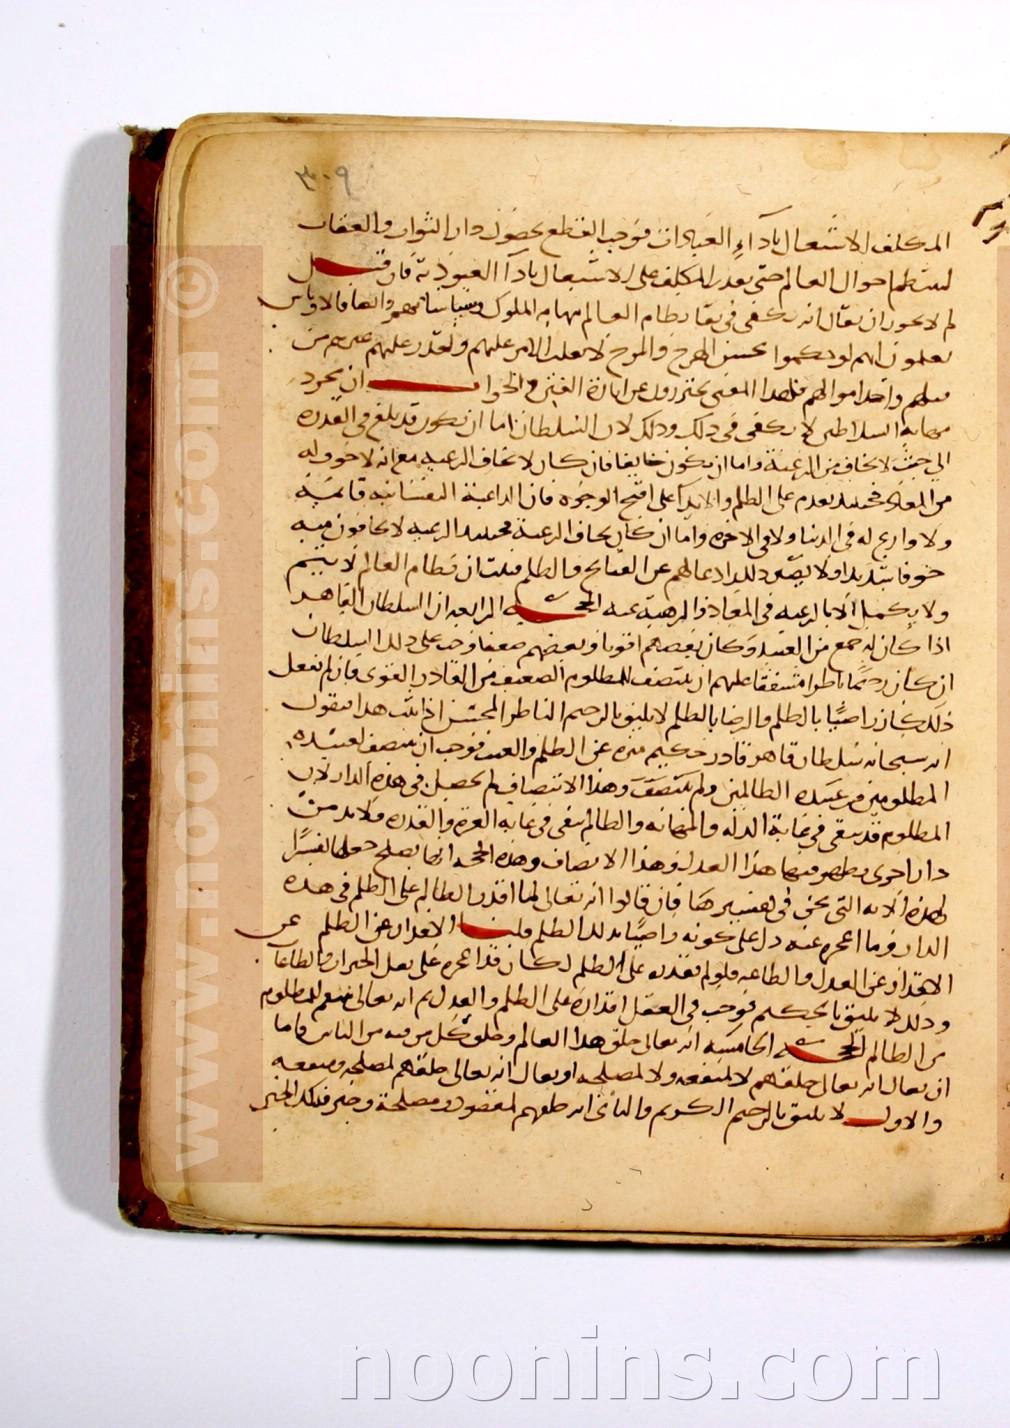 ٣٠٩
المكلف الاشتغال باداء العبادات فوجب القطع بحصول دار الثواب والعقاب
لينتظم احوال العالم حتى يقدر المكلف على الاشتغال باداء العبودية فان قيل
لم لا يجوز ان يقال انه يكفي في بقاء نظام العالم مهابة الملوك وسياساتهم وايضا فالاوباش
يعلمون انهم لو حكموا بحسن الهرج والمرج لانقلب الامر عليهم ولقدر عليهم غيرهم من
قبلهم واخذ اموالهم فلهذا المعنى يحترزون عن اثارة الفتن والجواب ان مجرد
مهابة السلاطين لا يكفي في ذلك وذلك لان السلطان اما ان يكون قد بلغ في القدرة
الى حيث لا يخاف من الرعية واما ان يكون خايفا فان كان لا يخاف الرعية مع انه لا خوف له
من المعاد فحينئذ يقدم على الظلم والايذا على اقبح الوجوه فان الداعية النفسانية قائمة
ولا وازع له في الدنيا ولا في الاخرة واما ان كان يخاف الرعية فحينئذ الرعية لا يخافون منه
خوفا شديدا ولا يصير ذلك رادعا لهم عن القبايح والظلم فثبت ان نظام العالم لا يتم
ولا يكمل الا بالرغبة في المعاد والرهبة عنه الحجة الرابعة ان السلطان القاهر
اذا كان له جمع من العبيد وكان بعضهم اقويا وبعضهم ضعفا وجب على ذلك السلطان
ان كان رحيما ناظرا مشفقا عليهم ان ينتصف للمظلوم الضعيف من القادر القوى فان لم يفعل
ذلك كان راضيا بالظلم والرضا بالظلم لا يليق بالرحيم الناظر المحسن اذا ثبت هذا فنقول
انه سبحانه سلطان قاهر قادر حكيم منزه عن الظلم والعبث فوجب ان ينتصف لعبيده
المظلومين من عبيده الظالمين ولم ينتصف وهذا الانتصاف لم يحصل في هذه الدار لان
المظلوم قد يبقى في غاية الذلة والمهانة والظالم يبقى في غاية العزة والقدرة فلا بد من
دار اخرى يظهر فيها هذا العدل وهذا الانصاف وهذه الحجة ايضا يصلح جعلها تفسيرا
لهذه الاية التي نحن في تفسيرها فان قالوا انه تعالى لما اقدر الظالم على الظلم في هذه
الدار وما اعجزه عنه دل على كونه راضيا بذلك الظلم قلنا الاقدار على الظلم عين
الاقدار على العدل والطاعة فلو لم يقدره على الظلم لكان قد اعجزه على فعل الخيرات والطاعات
وذلك لا يليق بالحكيم فوجب في العقل اقداره على الظلم والعدل ثم انه تعالى ينتقم للمظلوم
من الظالم الحجة الخامسة انه تعالى خلق هذا العالم وخلق كل من فيه من الناس فاما
ان يقال انه تعالى خلقهم لا لمنفعة ولا لمصلحة او يقال انه تعالى خلقهم لمصلحة ومنفعة
والاول لا يليق بالرحيم الكريم والثاني انه خلقهم لمقصود ومصلحة وخير فذلك الخير
www.noonins.com ©
noonins.com